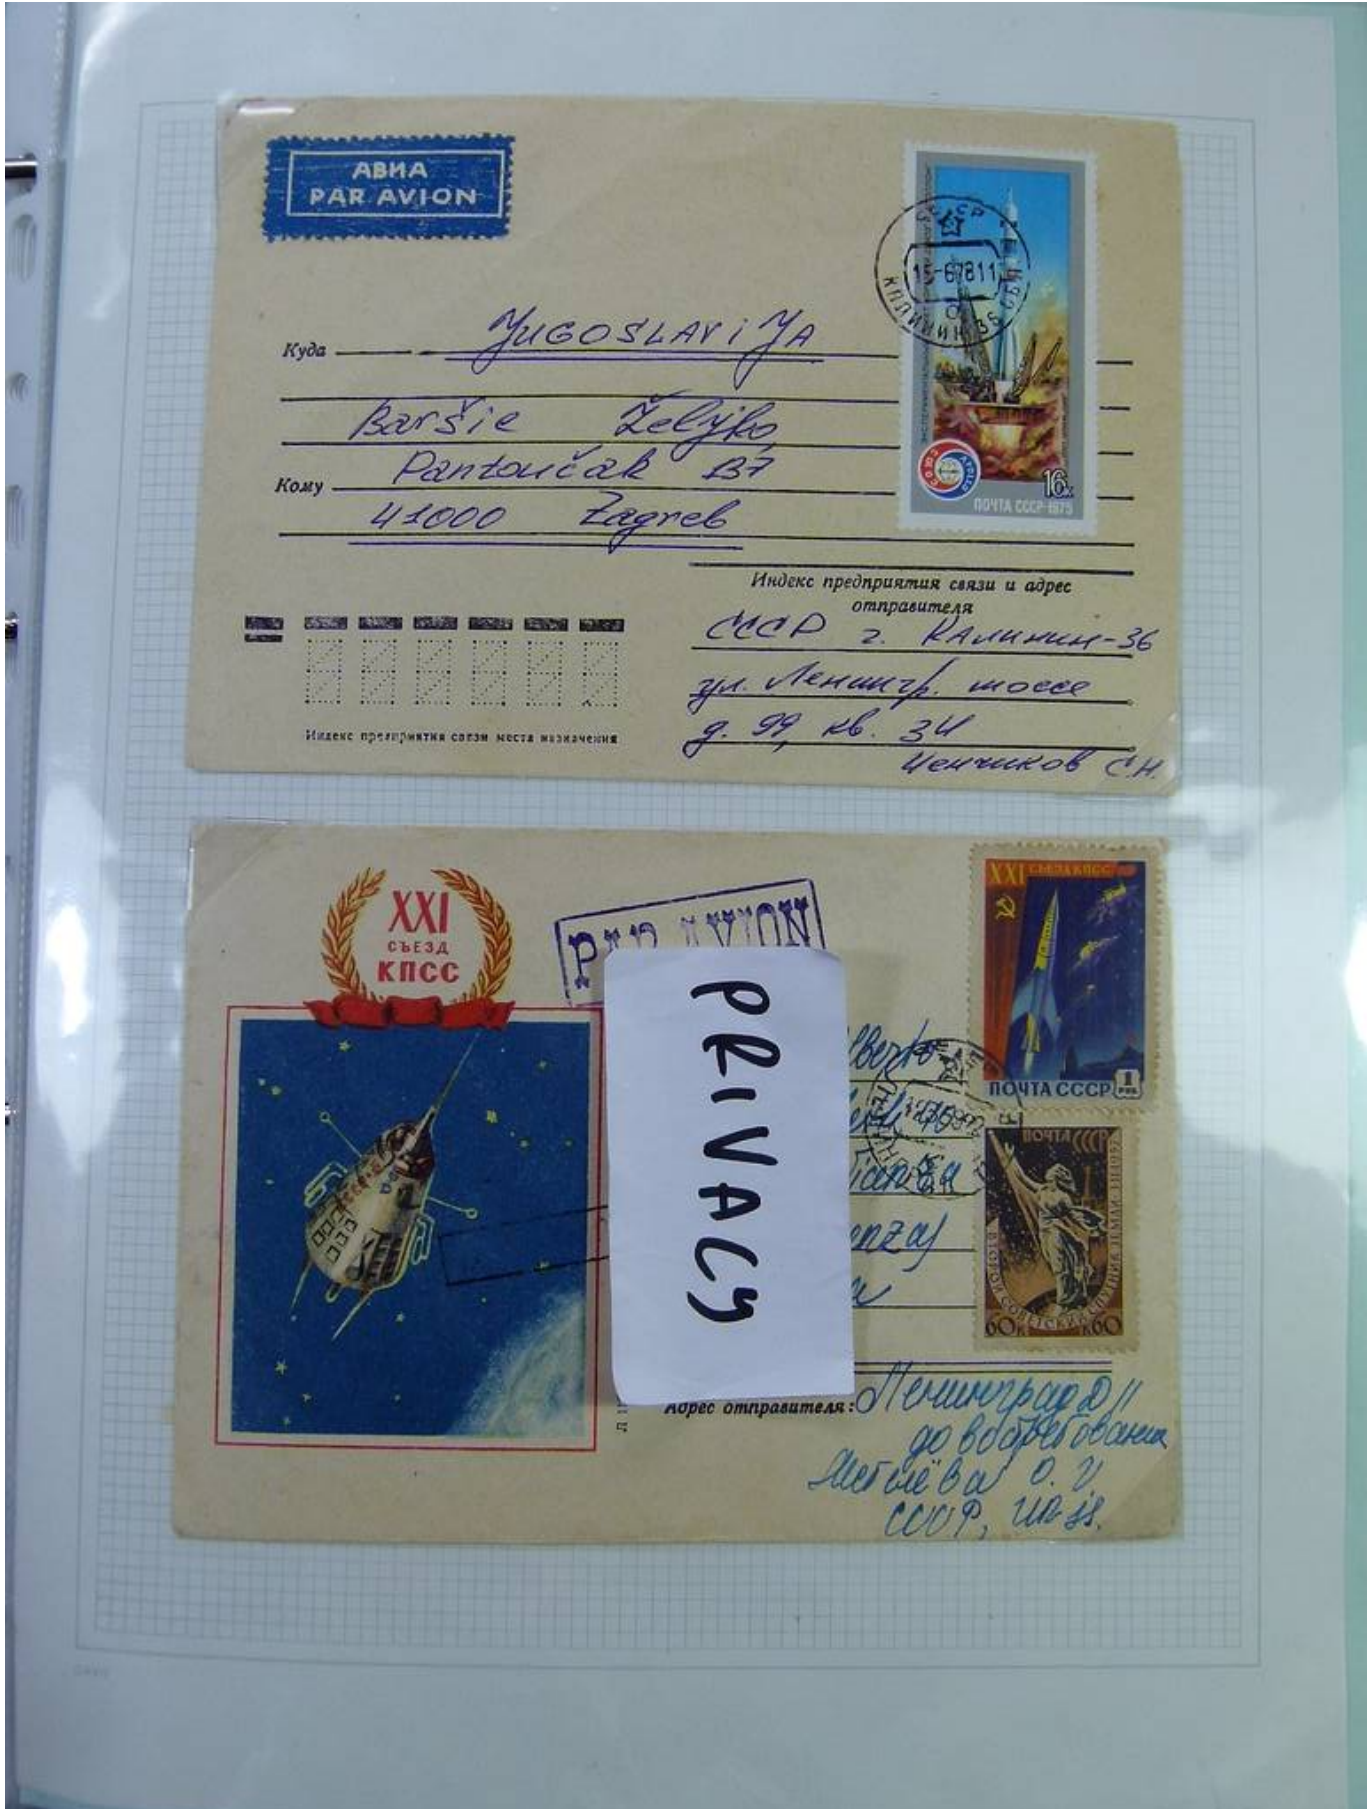 АВИА
PAR AVION
СССР
15-67811
КАЛИНИН 36
СОЮЗ
APOLLO
16к
ПОЧТА СССР·1975
Куда
JUGOSLAViJA
Baršic Željko
Pantovčak 137
Кому
41000 Zagreb
Индекс предприятия связи и адрес
отправителя
СССР г. КАлинин-36
ул. Ленингр. шоссе
д. 99, кв. 34
С.Н.
Индекс предприятия связи места назначения
XXI
СЪЕЗД
КПСС
PAR AVION
PRIVACY
XXI СЪЕЗД КПСС
ПОЧТА СССР 1 РУБ
ПОЧТА СССР
ВТОРОЙ СОВЕТСКИЙ СПУТНИК ЗЕМЛИ
60к к60
Адрес отправителя: Ленинград Д 11
до востребования
СССР,